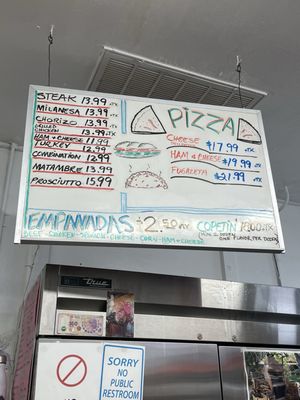 STEAK 13.99 +TX
MILANESA 13.99 +TX
CHORIZO 13.99 +TX
GRILLED CHICKEN 13.99 +TX
HAM & CHEESE 11.99
TURKEY 12.99
COMBINATION 12.99
MATAMBRE 13.99
PROSCIUTTO 15.99
PIZZA
CHEESE $17.99 +TX
HAM & CHEESE $19.99 +TX
FUGAZZETA $21.99 +TX
EMPANADAS $2.50
BEEF - CHICKEN - SPINACH - CHEESE - CORN - HAM + CHEESE
COPETIN
ONE FLAVOR PER DOZEN
True
SORRY
NO PUBLIC
RESTROOM